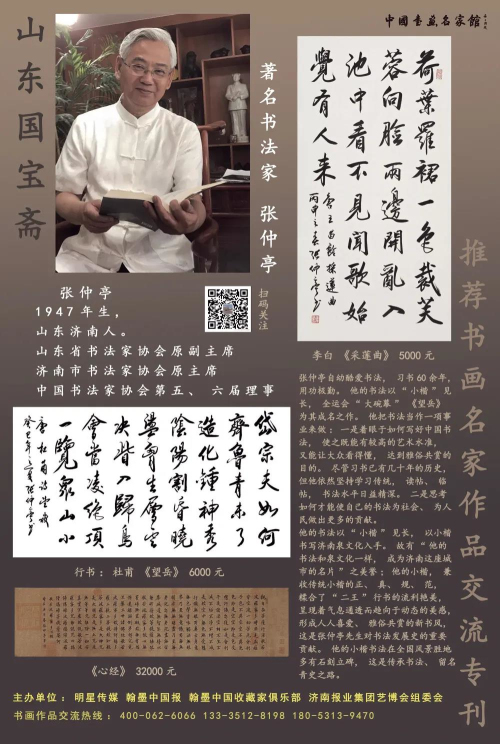 中國書畫名家館
山东国宝斋
著名书法家 张仲亭
荷葉羅裙一色裁芙
蓉向臉兩邊開亂入
池中看不見聞歌始
覺有人来
推荐书画名家作品交流专刊
张仲亭
1947年生，
山东济南人。
山东省书法家协会原副主席
济南市书法家协会原主席
中国书法家协会第五、六届理事
扫码关注
李白 《采莲曲》 5000元
张仲亭自幼酷爱书法， 习书60余年，
用功极勤。 他的书法以“小楷”见
长， 全运会“大碗幕” 《望岳》
为其成名之作。 他把书法当作一项事
业来做：一是着眼于如何写好中国书
法， 使之既能有较高的艺术水准，
又能让大众看得懂， 达到雅俗共赏的
目的。 尽管习书已有几十年的历史，
但他依然坚持学习传统， 读帖、 临
帖， 书法水平日益精深。 二是思考
如何才能使自己的书法为社会、 为人
民做出更多的贡献。
他的书法以“小楷”见长， 以小楷
书写济南泉文化入手。 故有“他的
书法和泉文化一样， 成为济南这座城
市的名片”之美誉； 他的小楷， 兼
收传统小楷的正、 真、 规、 范，
糅合了“二王”行书的流利艳美，
呈现着气息通透而趋向于动态的美感，
形成人人喜爱、 雅俗共赏的新书风，
这是张仲亭先生对书法发展史的重要
贡献。 他的小楷书法在全国风景胜地
多有石刻立碑， 这是传承书法、 留名
青史之路。
岱宗夫如何
齊魯青未了
造化鍾神秀
陰陽割昏曉
盪胸生層雲
決眥入歸鳥
會當凌絶頂
一覽衆山小
行书：杜甫 《望岳》 6000元
《心经》 32000元
主办单位：明星传媒 翰墨中国报 翰墨中国收藏家俱乐部 济南报业集团艺博会组委会
书画作品交流热线：400-062-6066 133-3512-8198 180-5313-9470